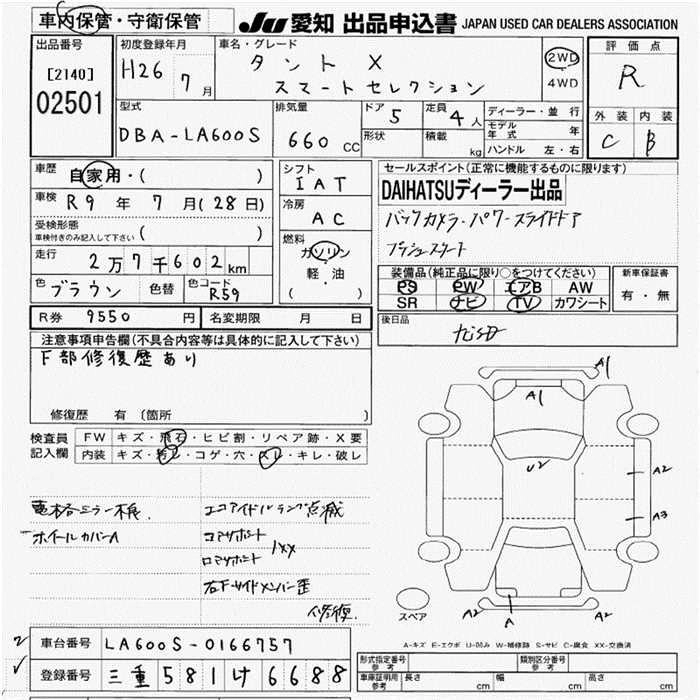 車内保管・守衛保管
JU 愛知 出品申込書 JAPAN USED CAR DEALERS ASSOCIATION
出品番号
[2140]
02501
初度登録年月
H26 7 月
車名・グレード
タント X
スマートセレクション
2WD
・
4WD
評価点
R
外装 内装
C B
型式
DBA-LA600S
排気量
660 CC
ドア 5
形状
定員 4 人
積載 kg
ディーラー・並行
モデル年式 年
ハンドル 左・右
車歴
自家用・( )
車検
R9 年 7 月 (28日)
受検形態
車検付きのみ記入して下さい ( )
走行
2万7千602 km
色 ブラウン 色替 色コード R59
シフト
IAT
冷房
AC
燃料
ガソリン
軽・油
( )
セールスポイント(正常に機能するものに限ります)
DAIHATSUディーラー出品
バックカメラ・パワースライドドア
プッシュスタート
装備品(純正品に限り○をつけてください)
PS PW エアB AW
SR ナビ TV カワシート
新車保証書
有・無
R券 9550 円 名変期限 月 日
後日品
注意事項申告欄(不具合内容等は具体的に記入して下さい)
下部修復歴あり
修復歴 有 (箇所 )
検査員
記入欄
FW キズ・飛石・ヒビ割・リペア跡・X要
内装 キズ・汚レ・コゲ・穴・スレ・キレ・破レ
電格ミラー不良.
ホイールカバーA
エコアイドルランプ点滅
コアサポート
ロアサポート
XX
右下サイドメンバー歪
修復
A1
A1
U2
A2
A3
A
A2
A2
スペア
A-キズ E-エクボ U-凹み W-補修跡 S-サビ C-腐食 XX-交換済
車台番号 LA600S-0166757
登録番号 三重 581 け 6688
形式指定番号 参考
類別区分番号 参考
車庫証明用 参考
長さ cm
幅 cm
高さ cm